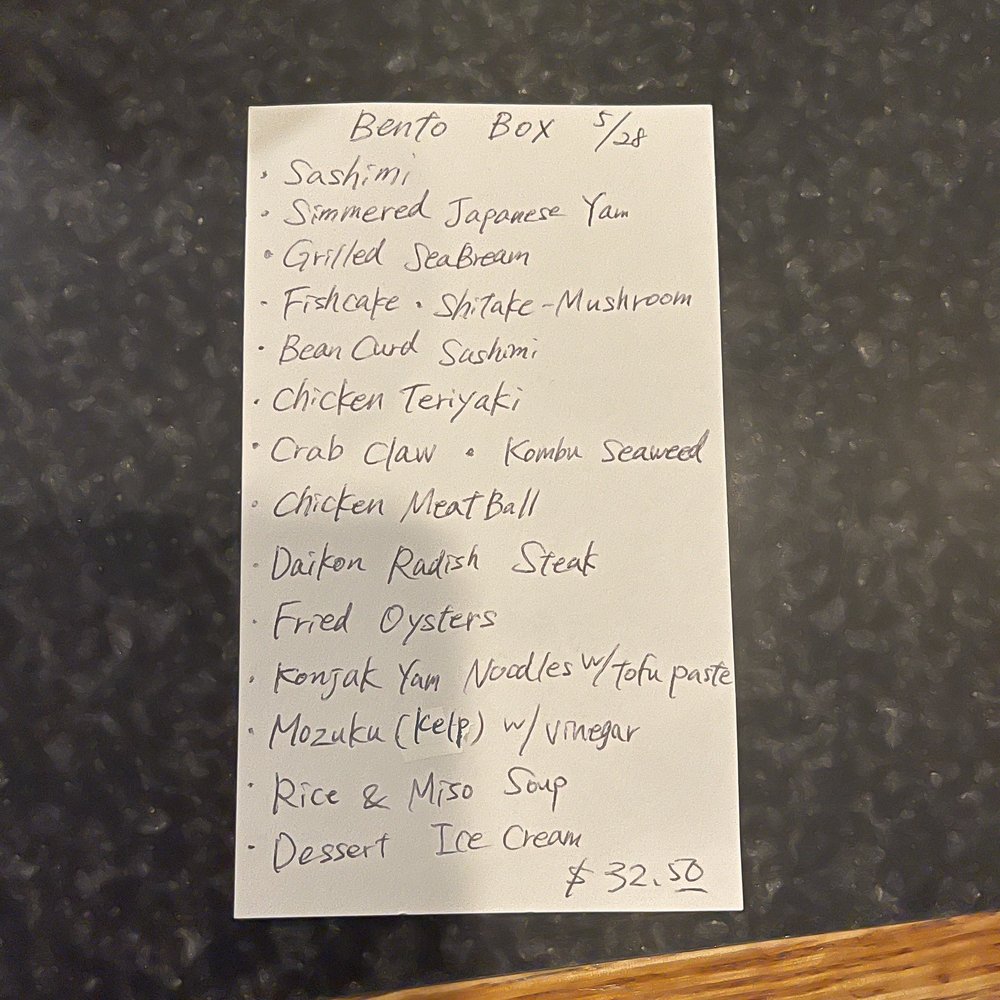 Bento Box 5/28
· Sashimi
· Simmered Japanese Yam
· Grilled SeaBream
· Fishcake · Shitake-Mushroom
· Bean Curd Sashimi
· Chicken Teriyaki
· Crab Claw · Kombu Seaweed
· Chicken Meat Ball
· Daikon Radish Steak
· Fried Oysters
· Konjak Yam Noodles w/tofu paste
· Mozuku (kelp) w/vinegar
· Rice & Miso Soup
· Dessert Ice Cream
$ 32.50